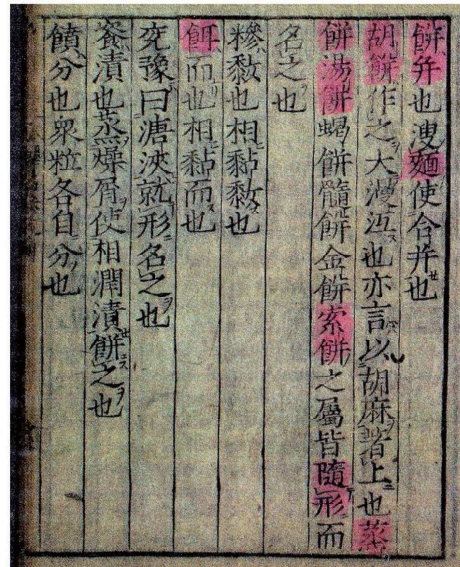 餅并也溲麵使合并也
胡餅作之大漫沍也亦言以胡麻著上也蒸
餅湯餅蝎餅髓餅金餅索餅之屬皆隨形而
名之也
糝也相黏也
餌而也相黏而也
兗豫曰溏浹就形名之也
餈漬也蒸燥屑使相潤漬餅之也
饙分也衆粒各自分也